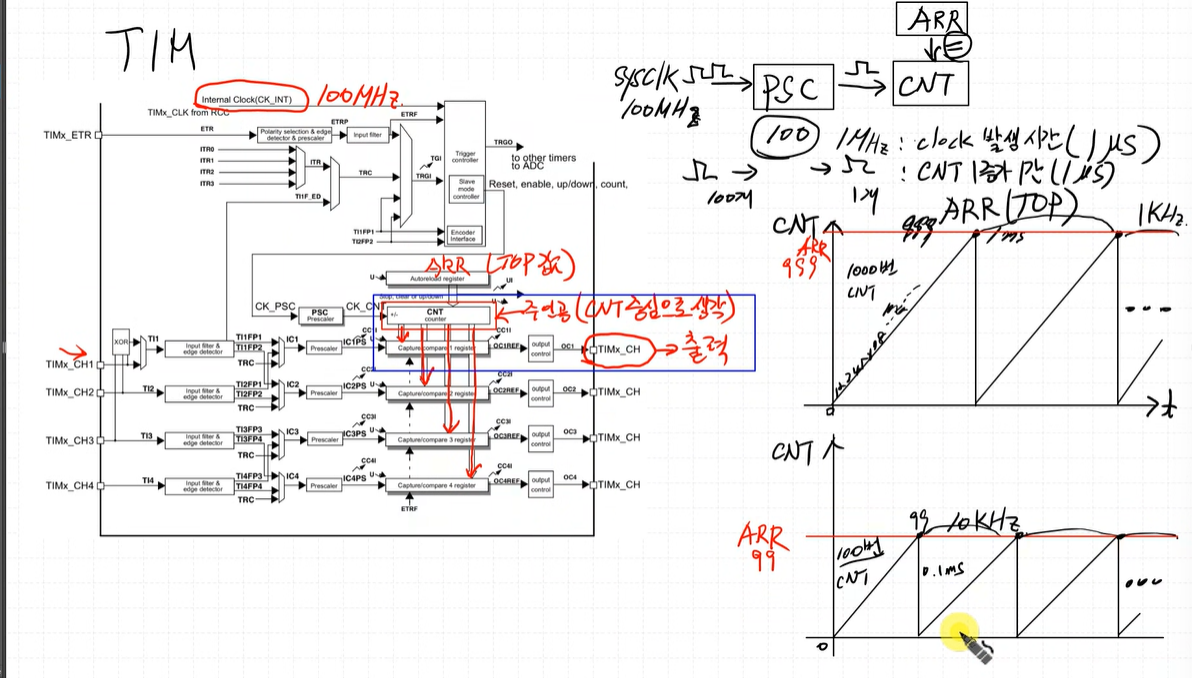 TIM
Internal Clock(CK_INT)
100MHz
TIMx_CLK from RCC
TIMx_ETR
ETR
Polarity selection & edge
detector & prescaler
ETRP
Input filter
ETRF
ITR0
ITR1
ITR2
ITR3
ITR
TRC
TI1F_ED
TGI
TRGI
Trigger
controller
TRGO
to other timers
to ADC
Slave
mode
controller
Reset, enable, up/down, count,
TI1FP1
TI2FP2
Encoder
Interface
ARR (TOP 값)
U
Autoreload register
UI
Stop, clear or up/down
U
CK_PSC
PSC
Prescaler
CK_CNT
+/-
CNT
counter
주인공 (CNT 중심으로 생각)
XOR
TI1
Input filter &
edge detector
TI1FP1
TI1FP2
TRC
IC1
Prescaler
IC1PS
CC1I
U
Capture/compare 1 register
CC1I
OC1REF
output
control
OC1
TIMx_CH
출력
TIMx_CH1
TIMx_CH2
TI2
Input filter &
edge detector
TI2FP1
TI2FP2
TRC
IC2
Prescaler
IC2PS
CC2I
U
Capture/compare 2 register
CC2I
OC2REF
output
control
OC2
TIMx_CH
TIMx_CH3
TI3
Input filter &
edge detector
TI3FP3
TI3FP4
TRC
IC3
Prescaler
IC3PS
CC3I
U
Capture/compare 3 register
CC3I
OC3REF
output
control
OC3
TIMx_CH
TIMx_CH4
TI4
Input filter &
edge detector
TI4FP3
TI4FP4
TRC
IC4
Prescaler
IC4PS
CC4I
U
Capture/compare 4 register
CC4I
OC4REF
output
control
OC4
TIMx_CH
ETRF
ARR
=
sysclk
100MHz
PSC
CNT
100
1MHz : clock 발생시간 (1μs)
100개
1개
: CNT 1증가 시간 (1μs)
CNT
ARR
999
999
ARR (TOP)
1ms
1KHz
1000번
CNT
0
t
CNT
ARR
99
99
10KHz
100번
CNT
0.1ms
0